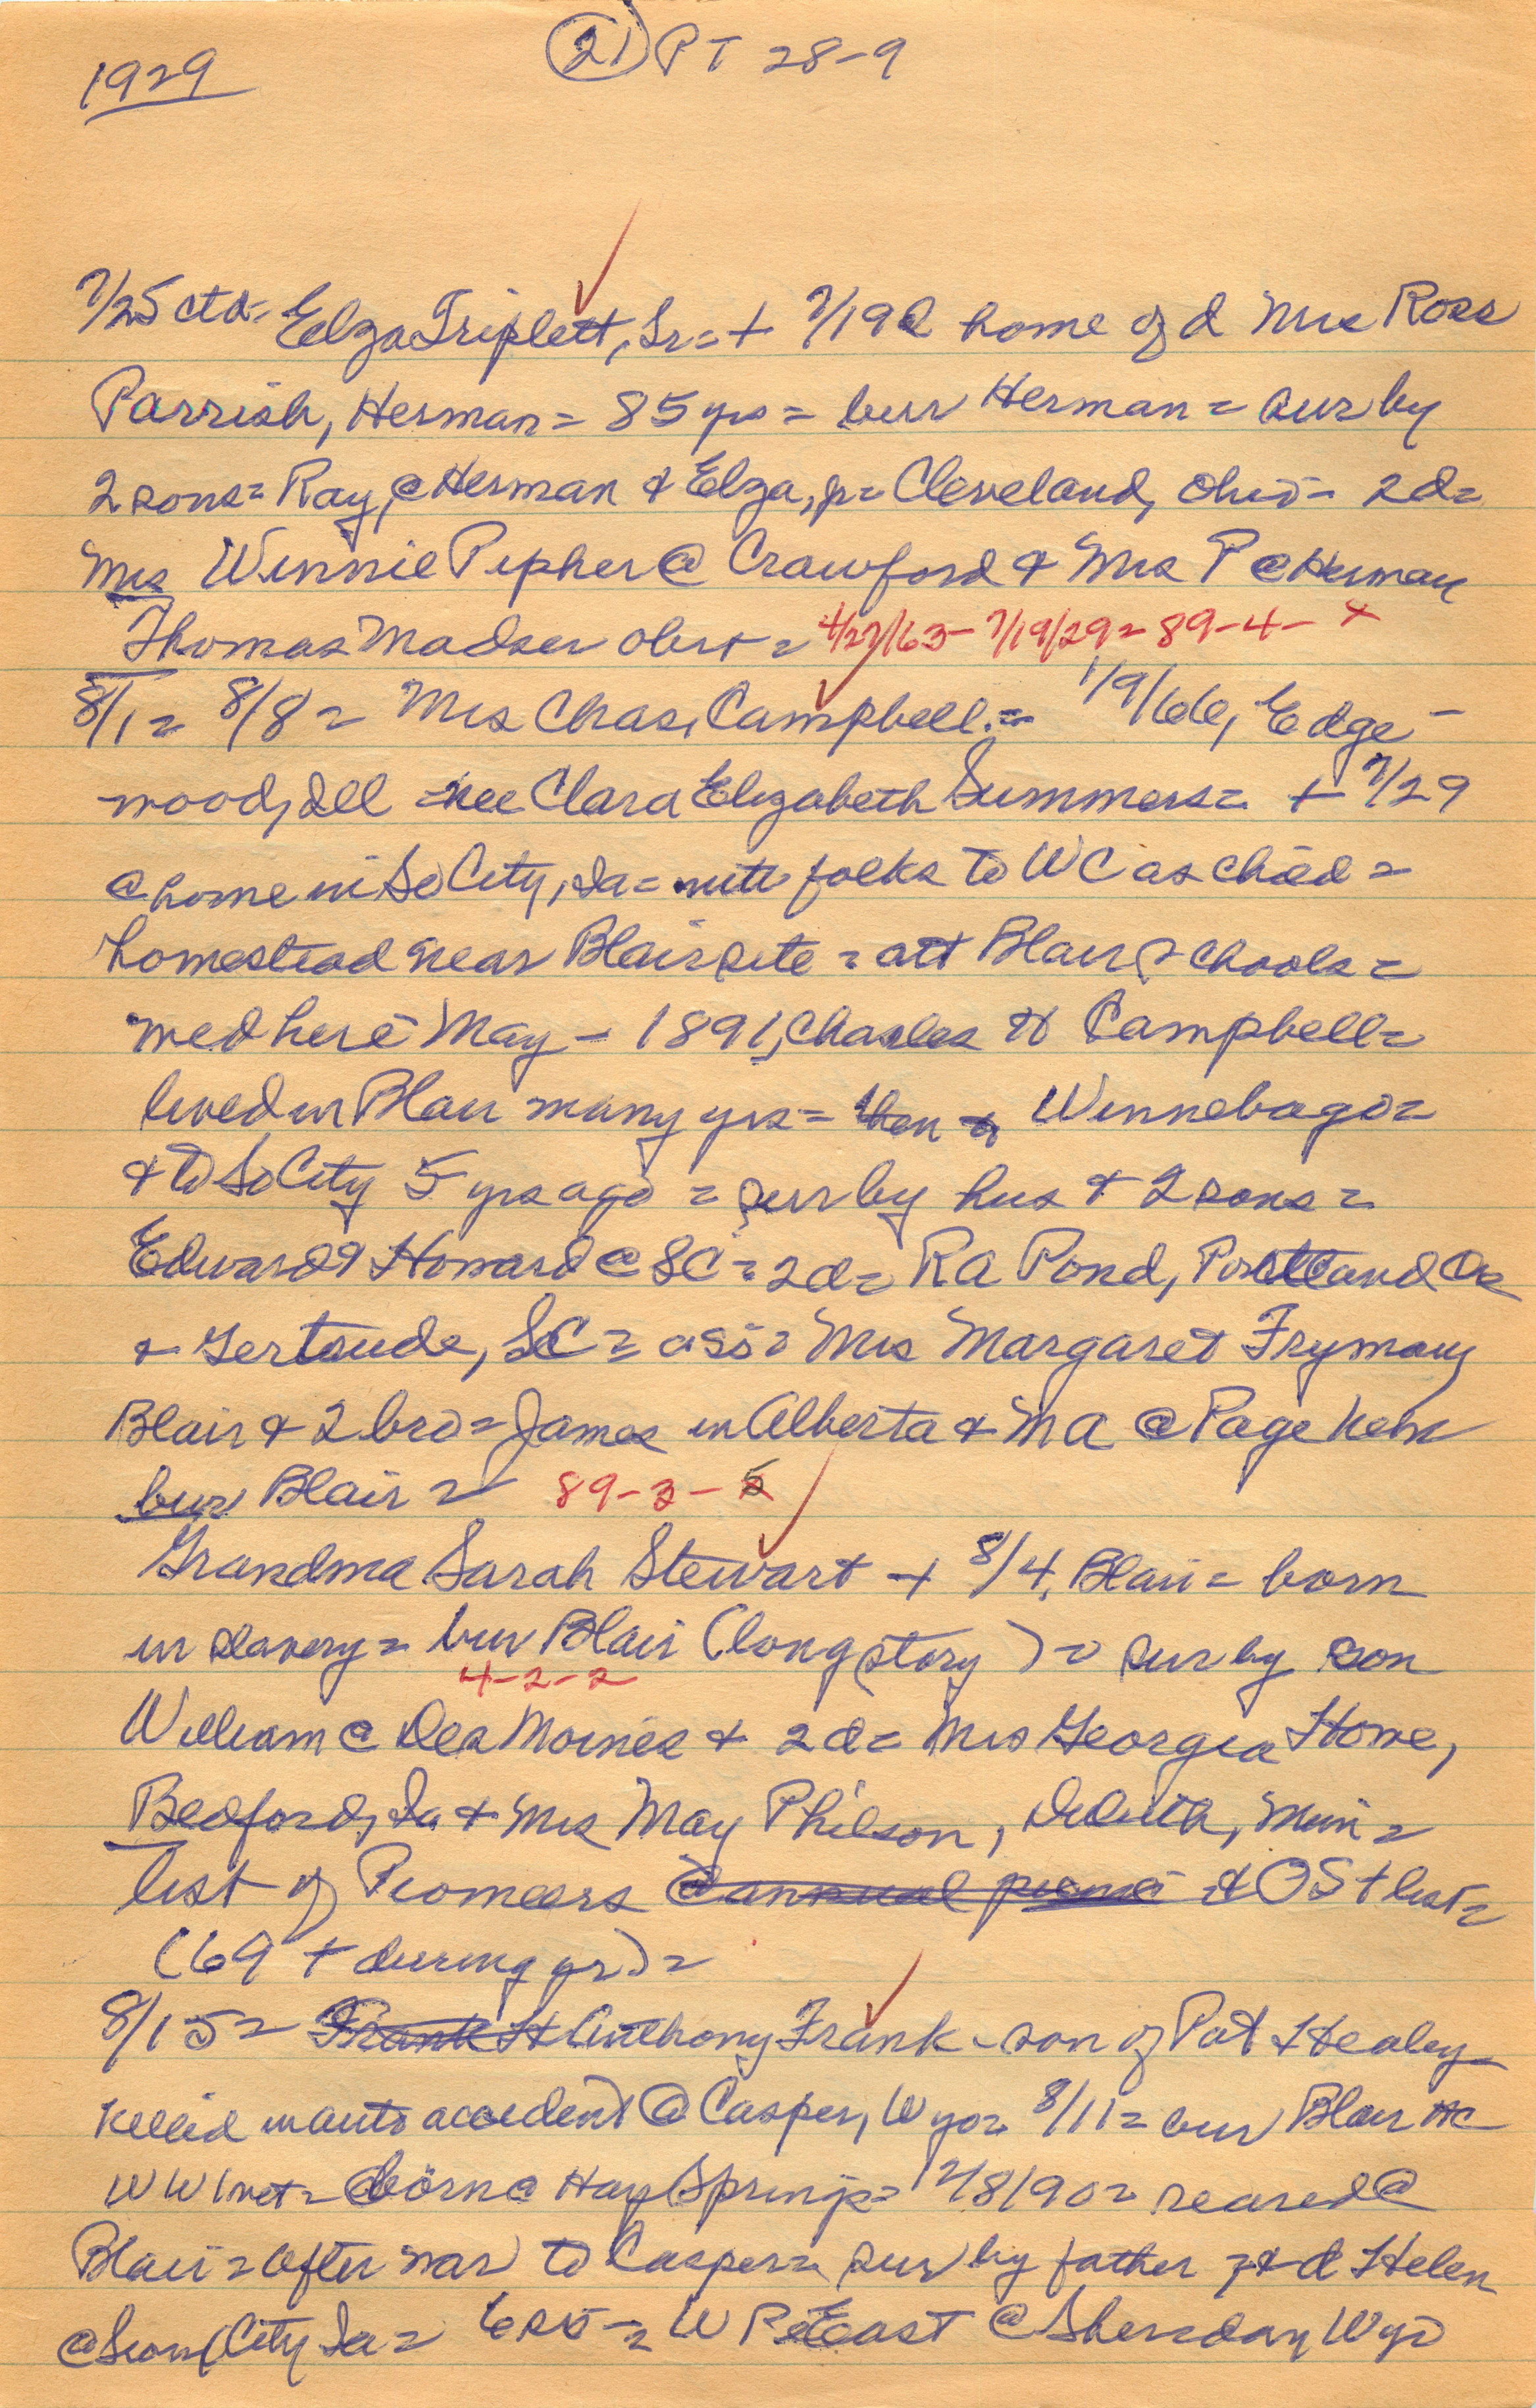 1929
(21) PT 28-9
7/25 ctd= Elza Triplett, Sr=+ 7/19 @ home of d Mrs Ross
Parrish, Herman= 85 yrs = bur Herman = sur by
2 sons= Ray, @ Herman & Elza, jr= Cleveland, Ohio= 2d=
Mrs Winnie Pipher @ Crawford & Mrs P @ Herman
Thomas Madsen obit = 4/27/63- 7/19/29= 89-4- x
8/1= 8/8= Mrs Chas. Campbell.= 1/9/66, Edge-
wood, Ill =nee Clara Elizabeth Summers= + 7/29
@ home in So City, Ia= with folks to WC as child=
homestead near Blair site = att Blair schools=
med here May - 1891, Charles H Campbell=
lived in Blair many yrs= then to Winnebago=
& to So City 5 yrs ago = sur by hus & 2 sons=
Edward & Howard @ SC= 2d= RA Pond, Portland Or
& Gertrude, SC= a sis= Mrs Margaret Fryman,
Blair & 2 bro= James in Alberta & MA @ Page Nebr
bur Blair = 89-3-5
Grandma Sarah Stewart + 8/4, Blair= born
in slavery= bur Blair (long story) = sur by son
4-2-2
William @ Des Moines & 2d= Mrs Georgia Howe,
Bedford, Ia & Mrs May Philson, Duluth, Minn=
list of Pioneers @ annual picnic & OS + list=
(69 + during yr)=
8/15= Frank H Anthony Frank - son of Pat Healey-
killed in auto accident @ Casper, Wyo= 8/11= bur Blair HC
WW1 vet= born @ Hay Springs= 12/8/90= reared @
Blair= after war to Casper= sur by father & d Helen
@ Sioux City Ia= bro = W R East @ Sheridan, Wyo